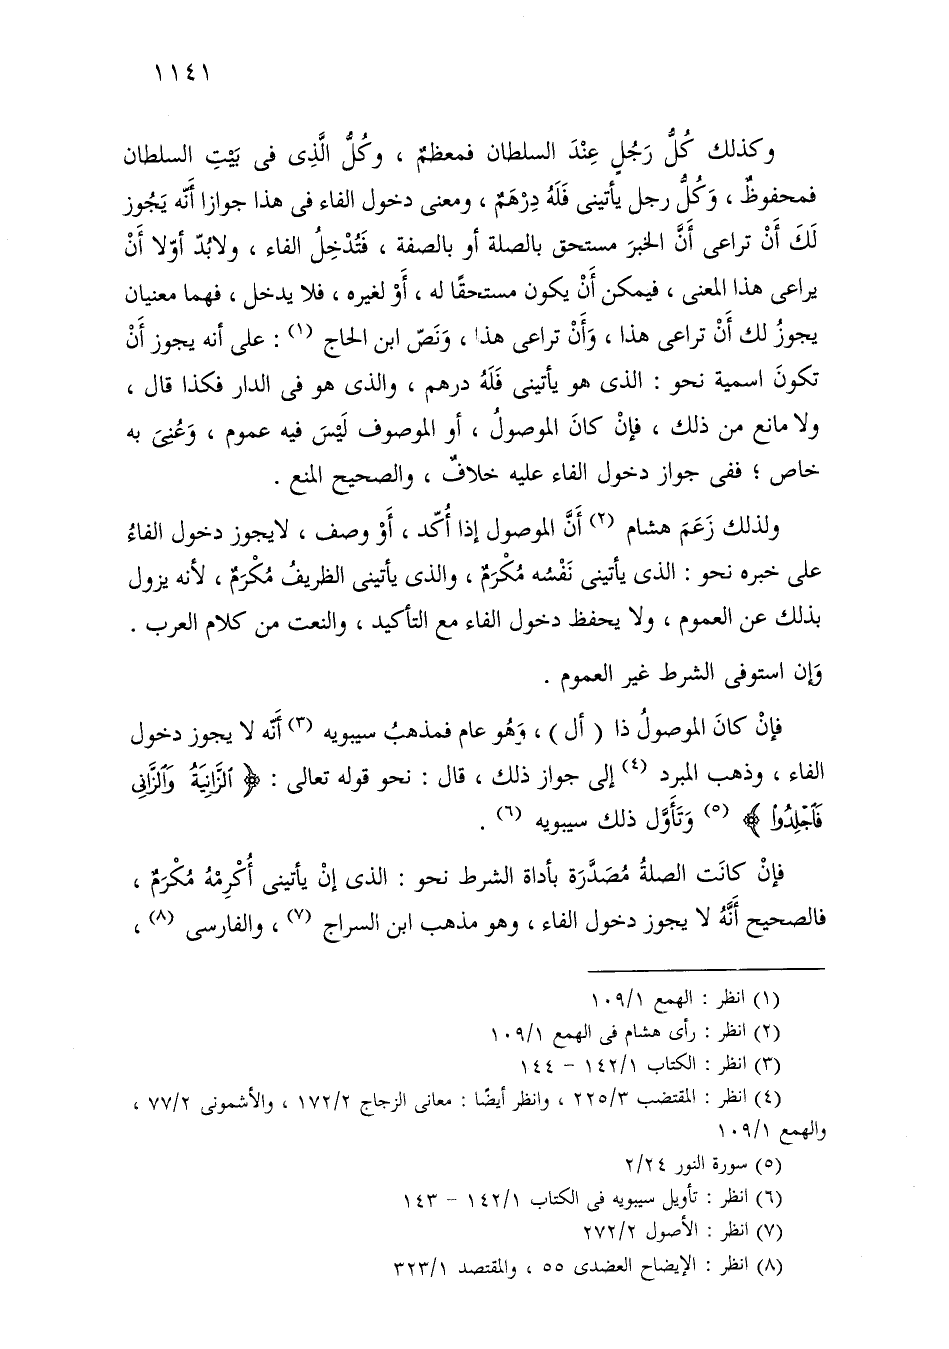 ١١٤١
وكذلك كُلُّ رَجُلٍ عِنْدَ السلطان فمعظمٌ ، وكُلُّ الَّذِى فى بَيْتِ السلطان
فمحفوظٌ ، وَكُلُّ رجل يأتينى فَلَهُ دِرْهَمٌ ، ومعنى دخول الفاء فى هذا جوازا أنّه يَجُوز
لَكَ أَنْ تراعى أَنَّ الخبرَ مستحق بالصلة أو بالصفة ، فَتُدْخِلُ الفاء ، ولابُدّ أوّلا أَنْ
يراعى هذا المعنى ، فيمكن أَنْ يكون مستحقًا له ، أَوْ لغيره ، فلا يدخل ، فهما معنيان
يجوزُ لك أَنْ تراعى هذا ، وَأَنْ تراعى هذا ، وَنَصّ ابن الحاج (١) : على أنه يجوز أَنْ
تكونَ اسمية نحو : الذى هو يأتينى فَلَهُ درهم ، والذى هو فى الدار فكذا قال ،
ولا مانع من ذلك ، فإنْ كانَ الموصولُ ، أو الموصوف لَيْسَ فيه عموم ، وَعُنِىَ به
خاص ؛ ففى جواز دخول الفاء عليه خلافٌ ، والصحيح المنع .
ولذلك زَعَمَ هشام (٢) أَنَّ الموصول إذا أُكّد ، أَوْ وصف ، لايجوز دخول الفاءُ
على خبره نحو : الذى يأتينى نَفْسُه مُكْرَمٌ ، والذى يأتينى الظريفُ مُكْرَمٌ ، لأنه يزول
بذلك عن العموم ، ولا يحفظ دخول الفاء مع التأكيد ، والنعت من كلام العرب .
وَإن استوفى الشرط غير العموم .
فإنْ كانَ الموصولُ ذا ( أل ) ، وَهُو عام فمذهبُ سيبويه (٣) أَنّه لا يجوز دخول
الفاء ، وذهب المبرد (٤) إلى جواز ذلك ، قال : نحو قوله تعالى : ﴿ ٱلزَّانِيَةُ وَٱلزَّانِى
فَٱجْلِدُواْ ﴾ (٥) وَتَأَوَّل ذلك سيبويه (٦) .
فإنْ كانَت الصلةُ مُصَدَّرَة بأداة الشرط نحو : الذى إنْ يأتينى أُكْرِمْهُ مُكْرَمٌ ،
فالصحيح أَنَّهُ لا يجوز دخول الفاء ، وهو مذهب ابن السراج (٧) ، والفارسى (٨) ،
(١) انظر : الهمع ١٠٩/١
(٢) انظر : رأى هشام فى الهمع ١٠٩/١
(٣) انظر : الكتاب ١٤٢/١ – ١٤٤
(٤) انظر : المقتضب ٢٢٥/٣ ، وانظر أيضًا : معانى الزجاج ١٧٢/٢ ، والأشمونى ٧٧/٢ ،
والهمع ١٠٩/١
(٥) سورة النور ٢/٢٤
(٦) انظر : تأويل سيبويه فى الكتاب ١٤٢/١ – ١٤٣
(٧) انظر : الأصول ٢٧٢/٢
(٨) انظر : الإيضاح العضدى ٥٥ ، والمقتصد ٣٢٣/١